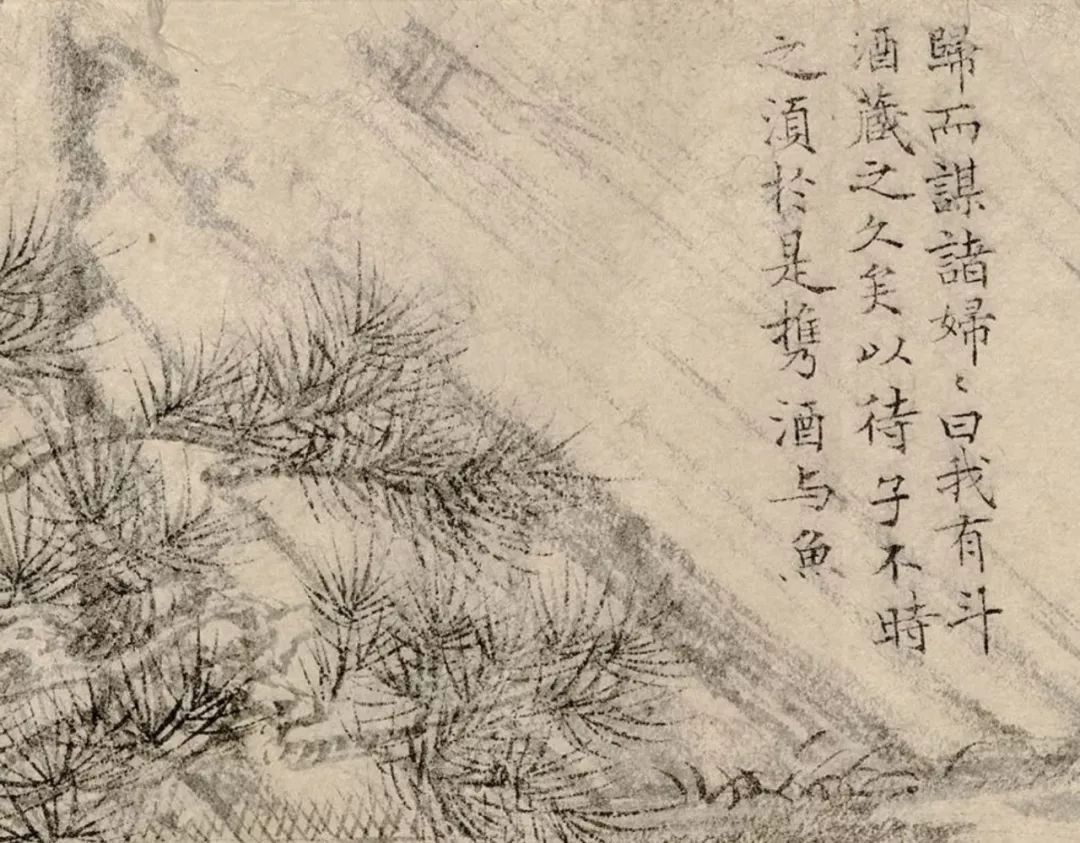 歸而謀諸婦〻曰我有斗
酒蔵之久矣以待子不時
之湏於是携酒与魚